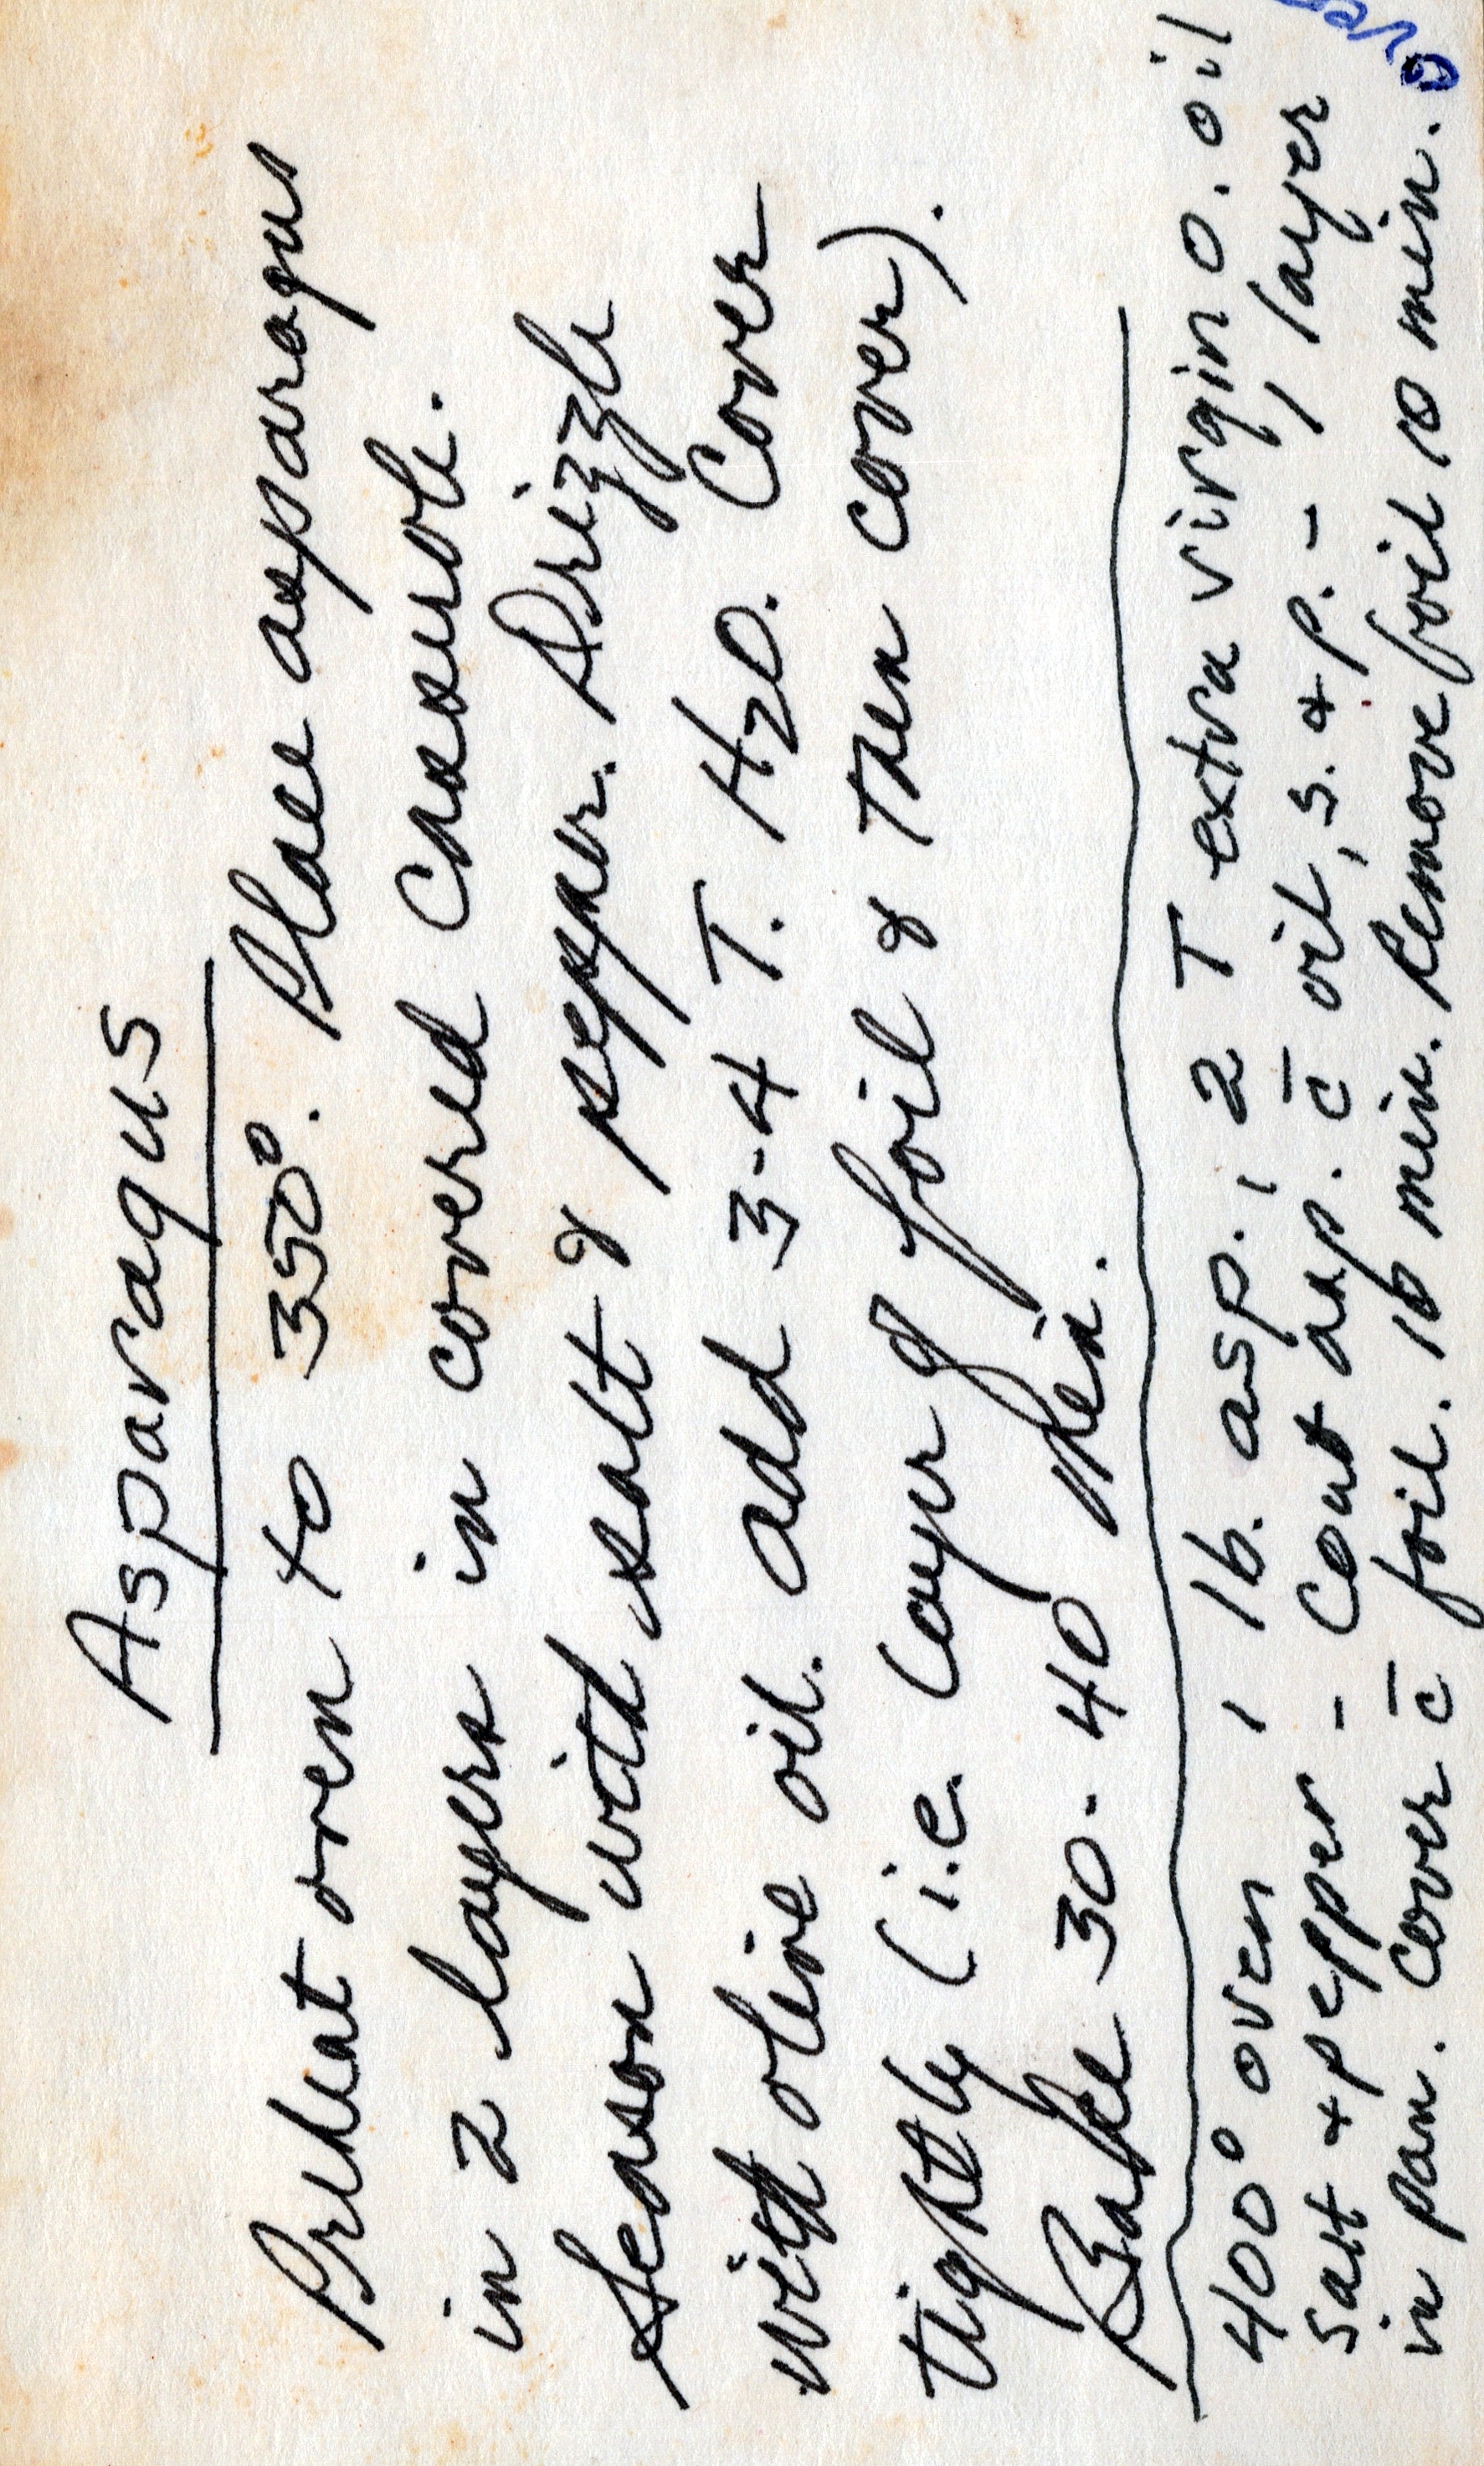 Asparagus
Preheat oven to 350°. Place asparagus
in 2 layers in covered casserole.
Season with salt & pepper. Drizzle
with olive oil. Add 3-4 T. H2O. Cover
tightly (i.e. layer of foil & then cover).
Bake 30-40 min.
400° oven, 1 lb. asp., 2 T extra virgin o. oil
salt + pepper - coat asp. c̄ oil, s. + p. - 1 layer
in pan. Cover c̄ foil. 10 min. Remove foil 10 min.